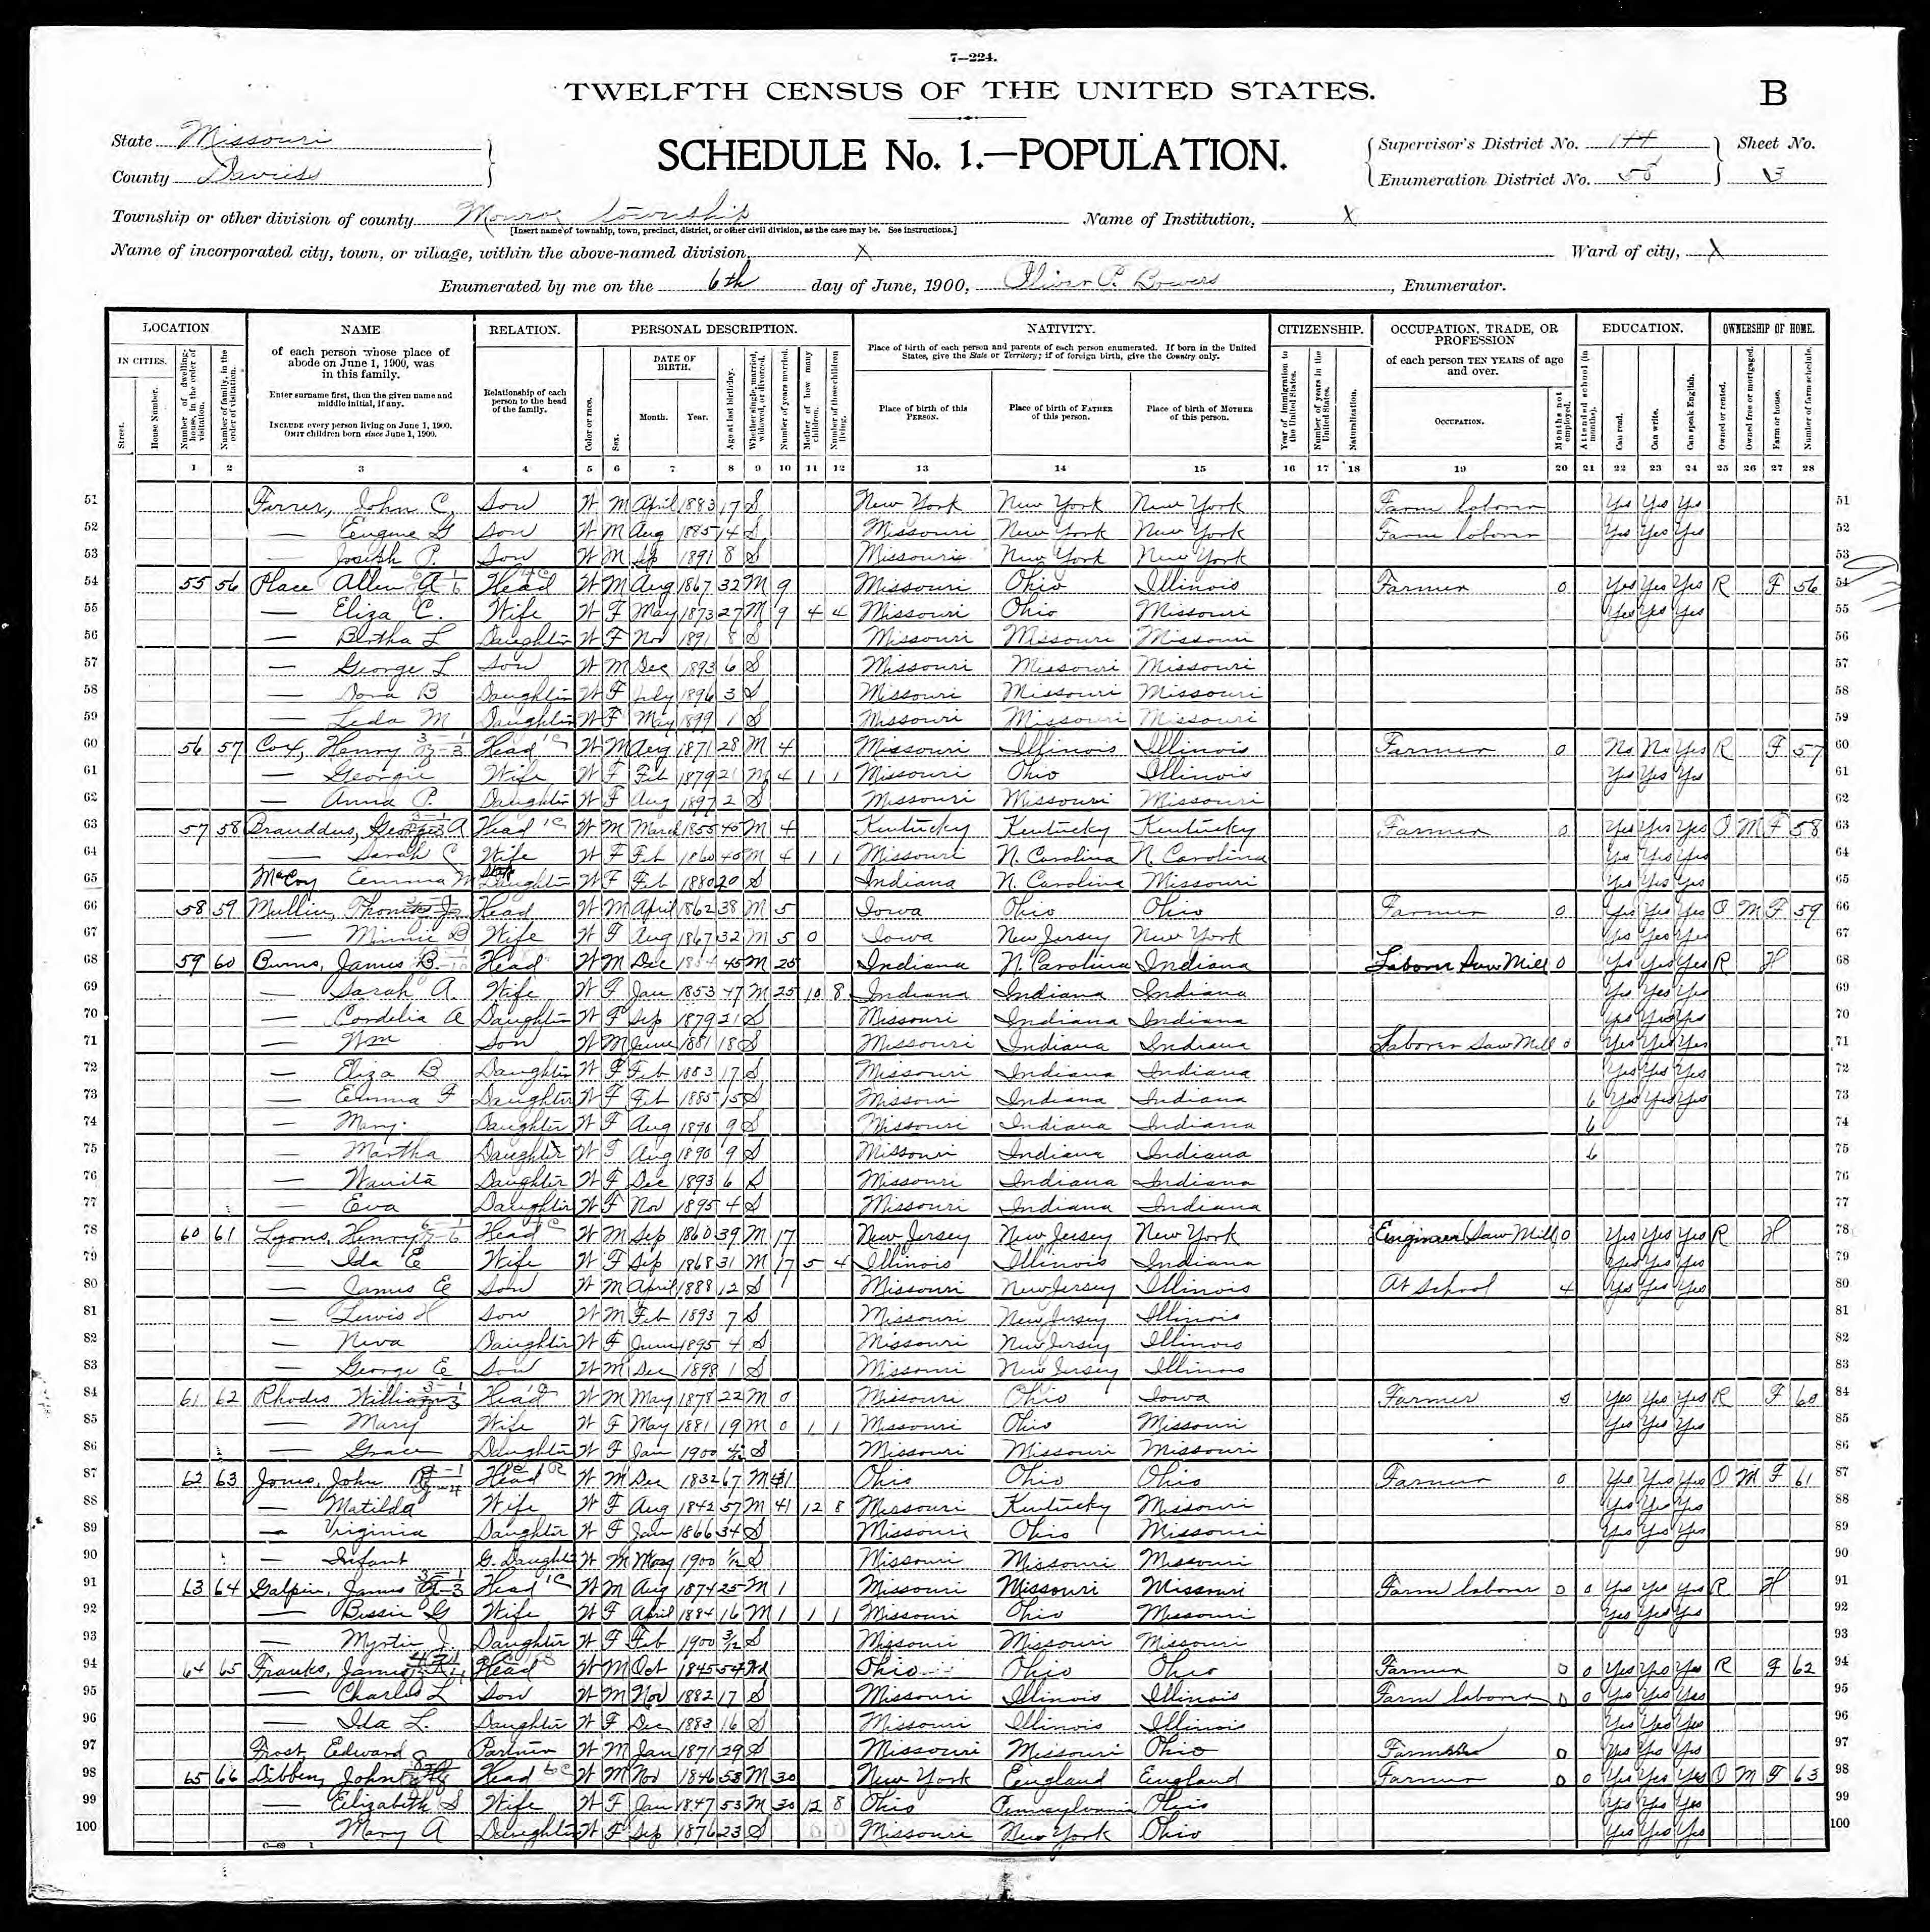 7—224.
TWELFTH CENSUS OF THE UNITED STATES.
B
State Missouri
County Daviess
SCHEDULE No. 1.—POPULATION.
Supervisor's District No.
Enumeration District No. 55
Sheet No.
3
Township or other division of county Monroe township
[Insert name of township, town, precinct, district, or other civil division, as the case may be. See instructions.]
Name of Institution, X
Name of incorporated city, town, or village, within the above-named division, X
Ward of city, X
Enumerated by me on the 6th day of June, 1900, Oliver P. Bowers, Enumerator.
LOCATION.
IN CITIES.
Street.
House Number.
Number of dwelling-house, in the order of visitation.
Number of family, in the order of visitation.
NAME
of each person whose place of abode on June 1, 1900, was in this family.
Enter surname first, then the given name and middle initial, if any.
INCLUDE every person living on June 1, 1900.
OMIT children born since June 1, 1900.
RELATION.
Relationship of each person to the head of the family.
PERSONAL DESCRIPTION.
Color or race.
Sex.
DATE OF BIRTH.
Month. Year.
Age at last birthday.
Whether single, married, widowed, or divorced.
Number of years married.
Mother of how many children.
Number of these children living.
NATIVITY.
Place of birth of each person and parents of each person enumerated. If born in the United States, give the State or Territory; if of foreign birth, give the Country only.
Place of birth of this PERSON.
Place of birth of FATHER of this person.
Place of birth of MOTHER of this person.
CITIZENSHIP.
Year of immigration to the United States.
Number of years in the United States.
Naturalization.
OCCUPATION, TRADE, OR PROFESSION
of each person TEN YEARS of age and over.
OCCUPATION.
Months not employed.
EDUCATION.
Attended school (in months).
Can read.
Can write.
Can speak English.
OWNERSHIP OF HOME.
Owned or rented.
Owned free or mortgaged.
Farm or house.
Number of farm schedule.
1 2 3 4 5 6 7 8 9 10 11 12 13 14 15 16 17 18 19 20 21 22 23 24 25 26 27 28
51 John C. Son W M April 1883 17 S New York New York New York Farm laborer Yes Yes Yes 51
52 — Eugene G Son W M Aug 1885 14 S Missouri New York New York Farm laborer Yes Yes Yes 52
53 — Joseph P. Son W M Sep 1891 8 S Missouri New York New York 53
54 55 56 Place Allen A Head W M Aug 1867 32 M 9 Missouri Ohio Illinois Farmer 0 Yes Yes Yes R F 56 54
55 — Eliza C. Wife W F May 1873 27 M 9 4 4 Missouri Ohio Missouri Yes Yes Yes 55
56 — Bertha L Daughter W F Nov 1891 8 S Missouri Missouri Missouri 56
57 — George L Son W M Dec 1893 6 S Missouri Missouri Missouri 57
58 — Dora B Daughter W F July 1896 3 S Missouri Missouri Missouri 58
59 — Leda M Daughter W F May 1899 1 S Missouri Missouri Missouri 59
60 56 57 Cox, Henry Head W M Aug 1871 28 M 4 Missouri Illinois Illinois Farmer 0 No No Yes R F 57 60
61 — Georgie Wife W F Feb 1879 21 M 4 1 1 Missouri Ohio Illinois Yes Yes Yes 61
62 — Anna P. Daughter W F Aug 1897 2 S Missouri Missouri Missouri 62
63 57 58 Brauddus, George A Head W M March 1855 45 M 4 Kentucky Kentucky Kentucky Farmer 0 Yes Yes Yes O M F 58 63
64 — Sarah C Wife W F Feb 1860 40 M 4 1 1 Missouri N. Carolina N. Carolina Yes Yes Yes 64
65 McCoy Emma M Step Daughter W F Feb 1880 20 S Indiana N. Carolina Missouri Yes Yes Yes 65
66 58 59 Mullin, Thomas Head W M April 1862 38 M 5 Iowa Ohio Ohio Farmer 0 Yes Yes Yes O M F 59 66
67 — Minnie B Wife W F Aug 1867 32 M 5 0 Iowa New Jersey New York Yes Yes Yes 67
68 59 60 Burns, James B. Head W M Dec 45 M 25 Indiana N. Carolina Indiana Laborer Saw Mill 0 Yes Yes Yes R H 68
69 — Sarah A. Wife W F Jan 1853 47 M 25 10 8 Indiana Indiana Indiana Yes Yes Yes 69
70 — Cordelia A Daughter W F Sep 1879 21 S Missouri Indiana Indiana Yes Yes Yes 70
71 — Wm Son W M June 1881 18 S Missouri Indiana Indiana Laborer Saw Mill 0 Yes Yes Yes 71
72 — Eliza B Daughter W F Feb 1883 17 S Missouri Indiana Indiana Yes Yes Yes 72
73 — Emma F Daughter W F Feb 1885 15 S Missouri Indiana Indiana 6 Yes Yes Yes 73
74 — Mary Daughter W F Aug 1890 9 S Missouri Indiana Indiana 6 74
75 — Martha Daughter W F Aug 1890 9 S Missouri Indiana Indiana 6 75
76 — Wanita Daughter W F Dec 1893 6 S Missouri Indiana Indiana 76
77 — Eva Daughter W F Nov 1895 4 S Missouri Indiana Indiana 77
78 60 61 Lyons, Henry Head W M Sep 1860 39 M 17 New Jersey New Jersey New York Engineer Saw Mill 0 Yes Yes Yes R H 78
79 — Ida E Wife W F Sep 1868 31 M 17 5 4 Illinois Illinois Indiana Yes Yes Yes 79
80 — James E Son W M April 1888 12 S Missouri New Jersey Illinois At School 4 Yes Yes Yes 80
81 — Lewis H Son W M Feb 1893 7 S Missouri New Jersey Illinois 81
82 — Neva Daughter W F June 1895 4 S Missouri New Jersey Illinois 82
83 — George E Son W M Dec 1898 1 S Missouri New Jersey Illinois 83
84 61 62 Rhodes William Head W M May 1878 22 M 0 Missouri Ohio Iowa Farmer 0 Yes Yes Yes R F 60 84
85 — Mary Wife W F May 1881 19 M 0 1 1 Missouri Ohio Missouri Yes Yes Yes 85
86 — Grace Daughter W F Jan 1900 4/12 S Missouri Missouri Missouri 86
87 62 63 Jones, John Head W M Dec 1832 67 M 41 Ohio Ohio Ohio Farmer 0 Yes Yes Yes O M F 61 87
88 — Matilda Wife W F Aug 1842 57 M 41 12 8 Missouri Kentucky Missouri Yes Yes Yes 88
89 — Virginia Daughter W F Jan 1866 34 S Missouri Ohio Missouri Yes Yes Yes 89
90 — Infant G. Daughter W M May 1900 1/12 S Missouri Missouri Missouri 90
91 63 64 Galpin, James Head W M Aug 1874 25 M 1 Missouri Missouri Missouri Farm laborer 0 0 Yes Yes Yes R H 91
92 — Bessie G Wife W F April 1884 16 M 1 1 1 Missouri Ohio Missouri Yes Yes Yes 92
93 — Myrtie J. Daughter W F Feb 1900 3/12 S Missouri Missouri Missouri 93
94 64 65 Franks, James Head W M Oct 1845 54 Wd Ohio Ohio Ohio Farmer 0 0 Yes Yes Yes R F 62 94
95 — Charles L Son W M Nov 1882 17 S Missouri Illinois Illinois Farm laborer 0 0 Yes Yes Yes 95
96 — Ida L. Daughter W F Dec 1883 16 S Missouri Illinois Illinois Yes Yes Yes 96
97 Frost Edward Partner W M Jan 1871 29 S Missouri Missouri Ohio Farmer 0 Yes Yes Yes 97
98 65 66 Dibben, John Head W M Nov 1846 53 M 30 New York England England Farmer 0 0 Yes Yes Yes O M F 63 98
99 — Elizabeth S Wife W F Jan 1847 53 M 30 12 8 Ohio Pennsylvania Ohio Yes Yes Yes 99
100 — Mary A Daughter W F Sep 1876 23 S Missouri New York Ohio Yes Yes Yes 100